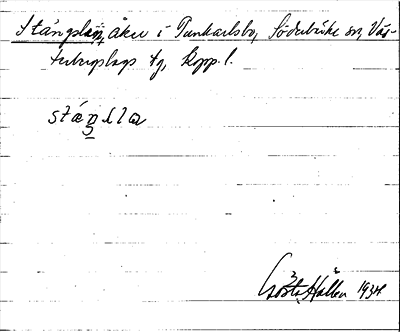 Stängslan, åker i Tunkarlsbo, Söderbärke sn, Väs-
terbergslags tg, Kopp. l.
stäŋ̱slla
Gösta Hallén 1934